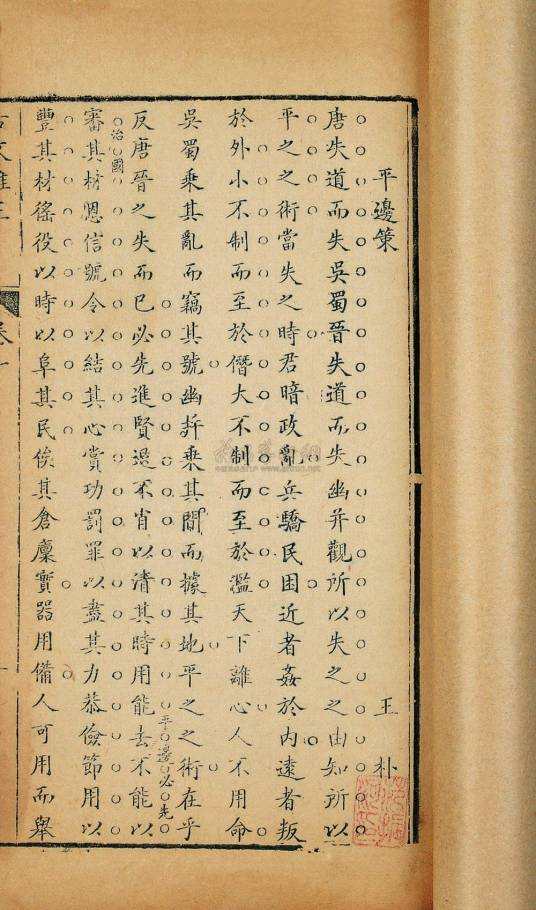 平邊策 王朴
唐失道而失吳蜀晉失道而失幽并觀所以失之之由知所以
平之之術當失之時君暗政亂兵驕民困近者姦於內遠者叛
於外小不制而至於僭大不制而至於濫天下離心人不用命
吳蜀乘其亂而竊其號幽并乘其間而據其地平之之術在乎
反唐晉之失而已必先進賢退不肖以清其時用能去不能以
平邊必先
治國
審其材恩信號令以結其心賞功罰罪以盡其力恭儉節用以
豐其材徭役以時以阜其民俟其倉廩實器用備人可用而舉